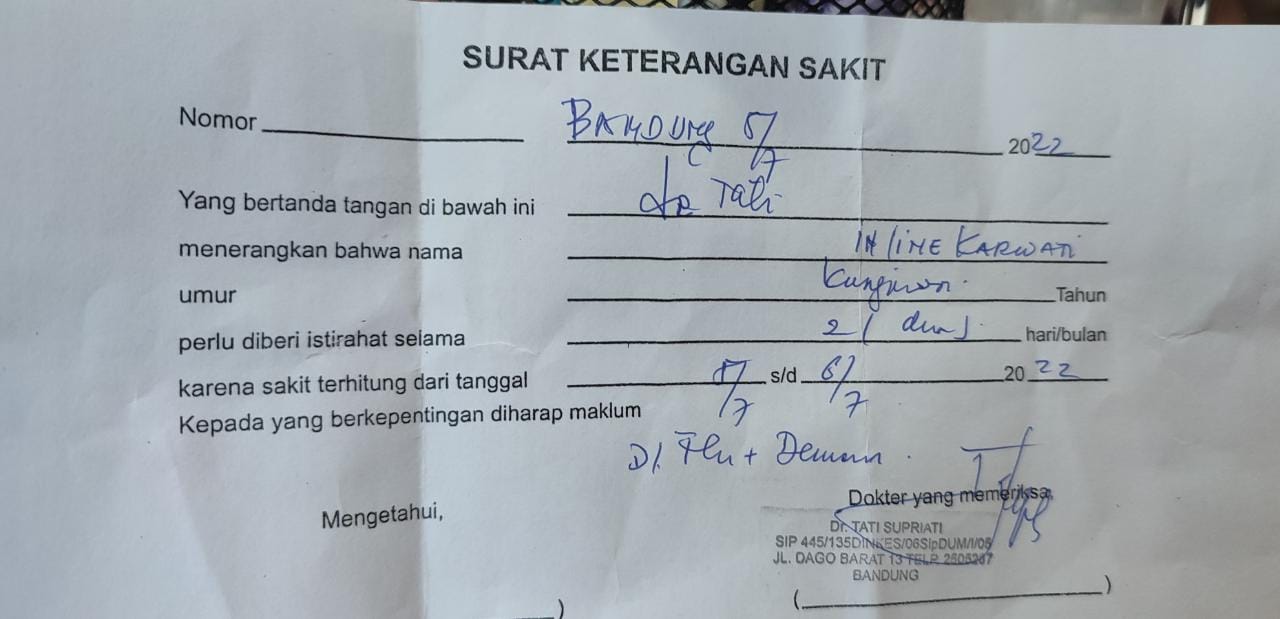 SURAT KETERANGAN SAKIT
Nomor BANDUNG 5/7 2022
Yang bertanda tangan di bawah ini dr Tati
menerangkan bahwa nama INLINE KARWATI
umur Tahun
perlu diberi istirahat selama 2 (dua) hari/bulan
karena sakit terhitung dari tanggal 5/7 s/d 6/7 2022
Kepada yang berkepentingan diharap maklum
D/. Flu + Demam
Mengetahui,
Dokter yang memeriksa,
Dr. TATI SUPRIATI
SIP 445/135DINKES/06SIpDUM/I/05
JL. DAGO BARAT 13 TELP. 2505267
BANDUNG